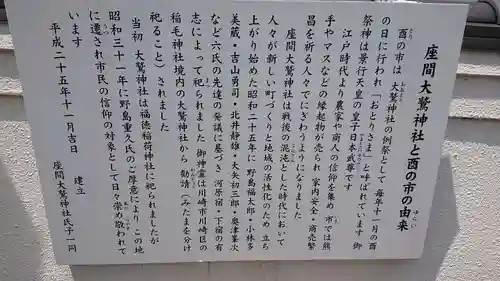 座間大鷲神社と酉の市の由来
酉の市は 大鷲神社の例祭として 毎年十一月の酉
の日に行われ「おとりさま」と呼ばれています 御
祭神は景行天皇の皇子日本武尊です
江戸時代より農家や商人の信仰を集め 市では熊
手やマスなどの縁起物が売られ 家内安全・商売繁
昌を祈る人々でにぎわうようになりました
座間大鷲神社は戦後の混沌とした時代において
人々が新しい町づくりと地域の活性化のため 立ち
上がり始めた昭和二十五年に 野島福太郎・小林多
美蔵・吉山勇司・北井靜雄・大矢初三郎・奥津峯次
など六氏の先達の発議に基づき 河原宿・下宿の有
志によって祀られました 御神霊は川崎市川崎区の
稲毛神社境内の大鷲神社から 勧請(みたまを分け
祀ること)されました
当初 大鷲神社は福徳稲荷神社に祀られましたが
昭和三十一年に野島重久氏のご厚意により この地
に遷され市民の信仰の対象として日々崇め敬われて
います
平成二十五年十一月吉日 建立
座間大鷲神社氏子一同